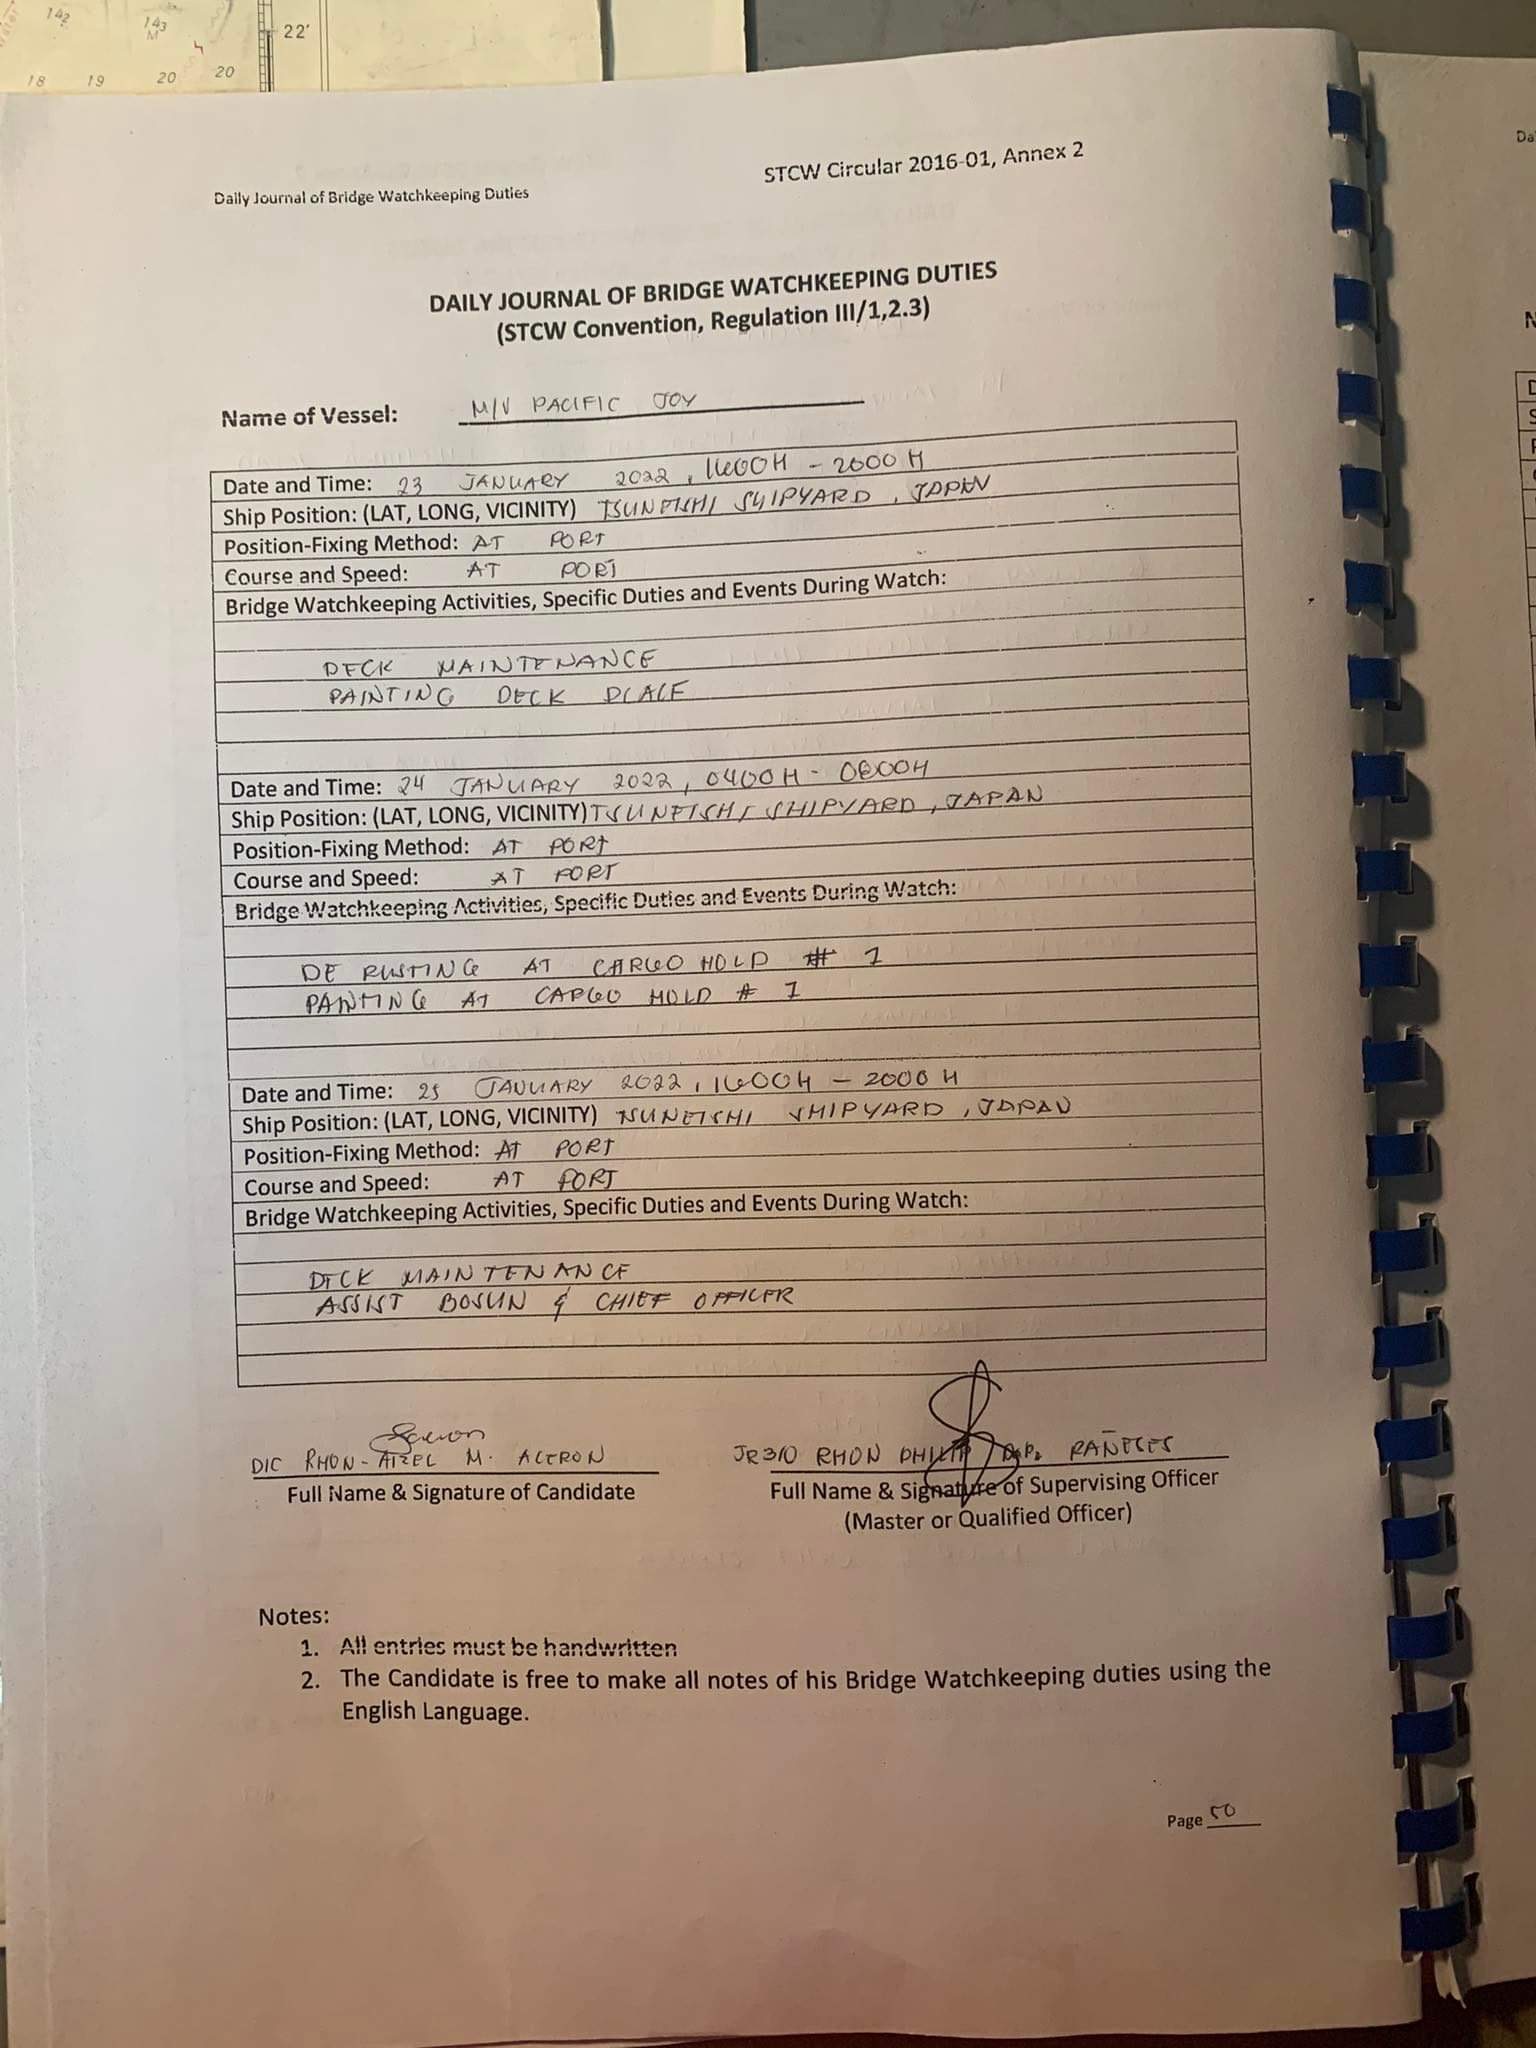 142
143
M
22'
18 19 20 20
Daily Journal of Bridge Watchkeeping Duties
STCW Circular 2016-01, Annex 2
DAILY JOURNAL OF BRIDGE WATCHKEEPING DUTIES
(STCW Convention, Regulation III/1,2.3)
Name of Vessel: M/V PACIFIC JOY
Date and Time: 23 JANUARY 2022, 1600H - 2000H
Ship Position: (LAT, LONG, VICINITY) TSUNEISHI SHIPYARD, JAPAN
Position-Fixing Method: AT PORT
Course and Speed: AT PORT
Bridge Watchkeeping Activities, Specific Duties and Events During Watch:
DECK MAINTENANCE
PAINTING DECK PLACE
Date and Time: 24 JANUARY 2022, 0400H - 0800H
Ship Position: (LAT, LONG, VICINITY) TSUNEISHI SHIPYARD, JAPAN
Position-Fixing Method: AT PORT
Course and Speed: AT PORT
Bridge Watchkeeping Activities, Specific Duties and Events During Watch:
DE RUSTING AT CARGO HOLD # 1
PAINTING AT CARGO HOLD # 1
Date and Time: 25 JANUARY 2022, 1600H - 2000H
Ship Position: (LAT, LONG, VICINITY) TSUNEISHI SHIPYARD, JAPAN
Position-Fixing Method: AT PORT
Course and Speed: AT PORT
Bridge Watchkeeping Activities, Specific Duties and Events During Watch:
DECK MAINTENANCE
ASSIST BOSUN & CHIEF OFFICER
DIC RHON-AIZEL M. ACERON JR3/O RHON PHILIP RAÑESES
Full Name & Signature of Candidate Full Name & Signature of Supervising Officer
(Master or Qualified Officer)
Notes:
1. All entries must be handwritten
2. The Candidate is free to make all notes of his Bridge Watchkeeping duties using the
English Language.
Page 50